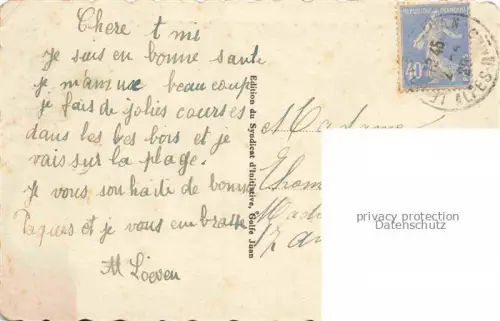 Chere t mi
je suis en bonne sante
je m'amuse beaucoup
je fais de jolies courses
dans les bes bois et je
vais sur la plage.
Je vous souhaite de bonne
Paques et je vous embrasse
M
Edition du Syndicat d'Initiative, Golfe Juan
REPUBLIQUE FRANÇAISE
40
Madame
Thom
privacy protection
Datenschutz